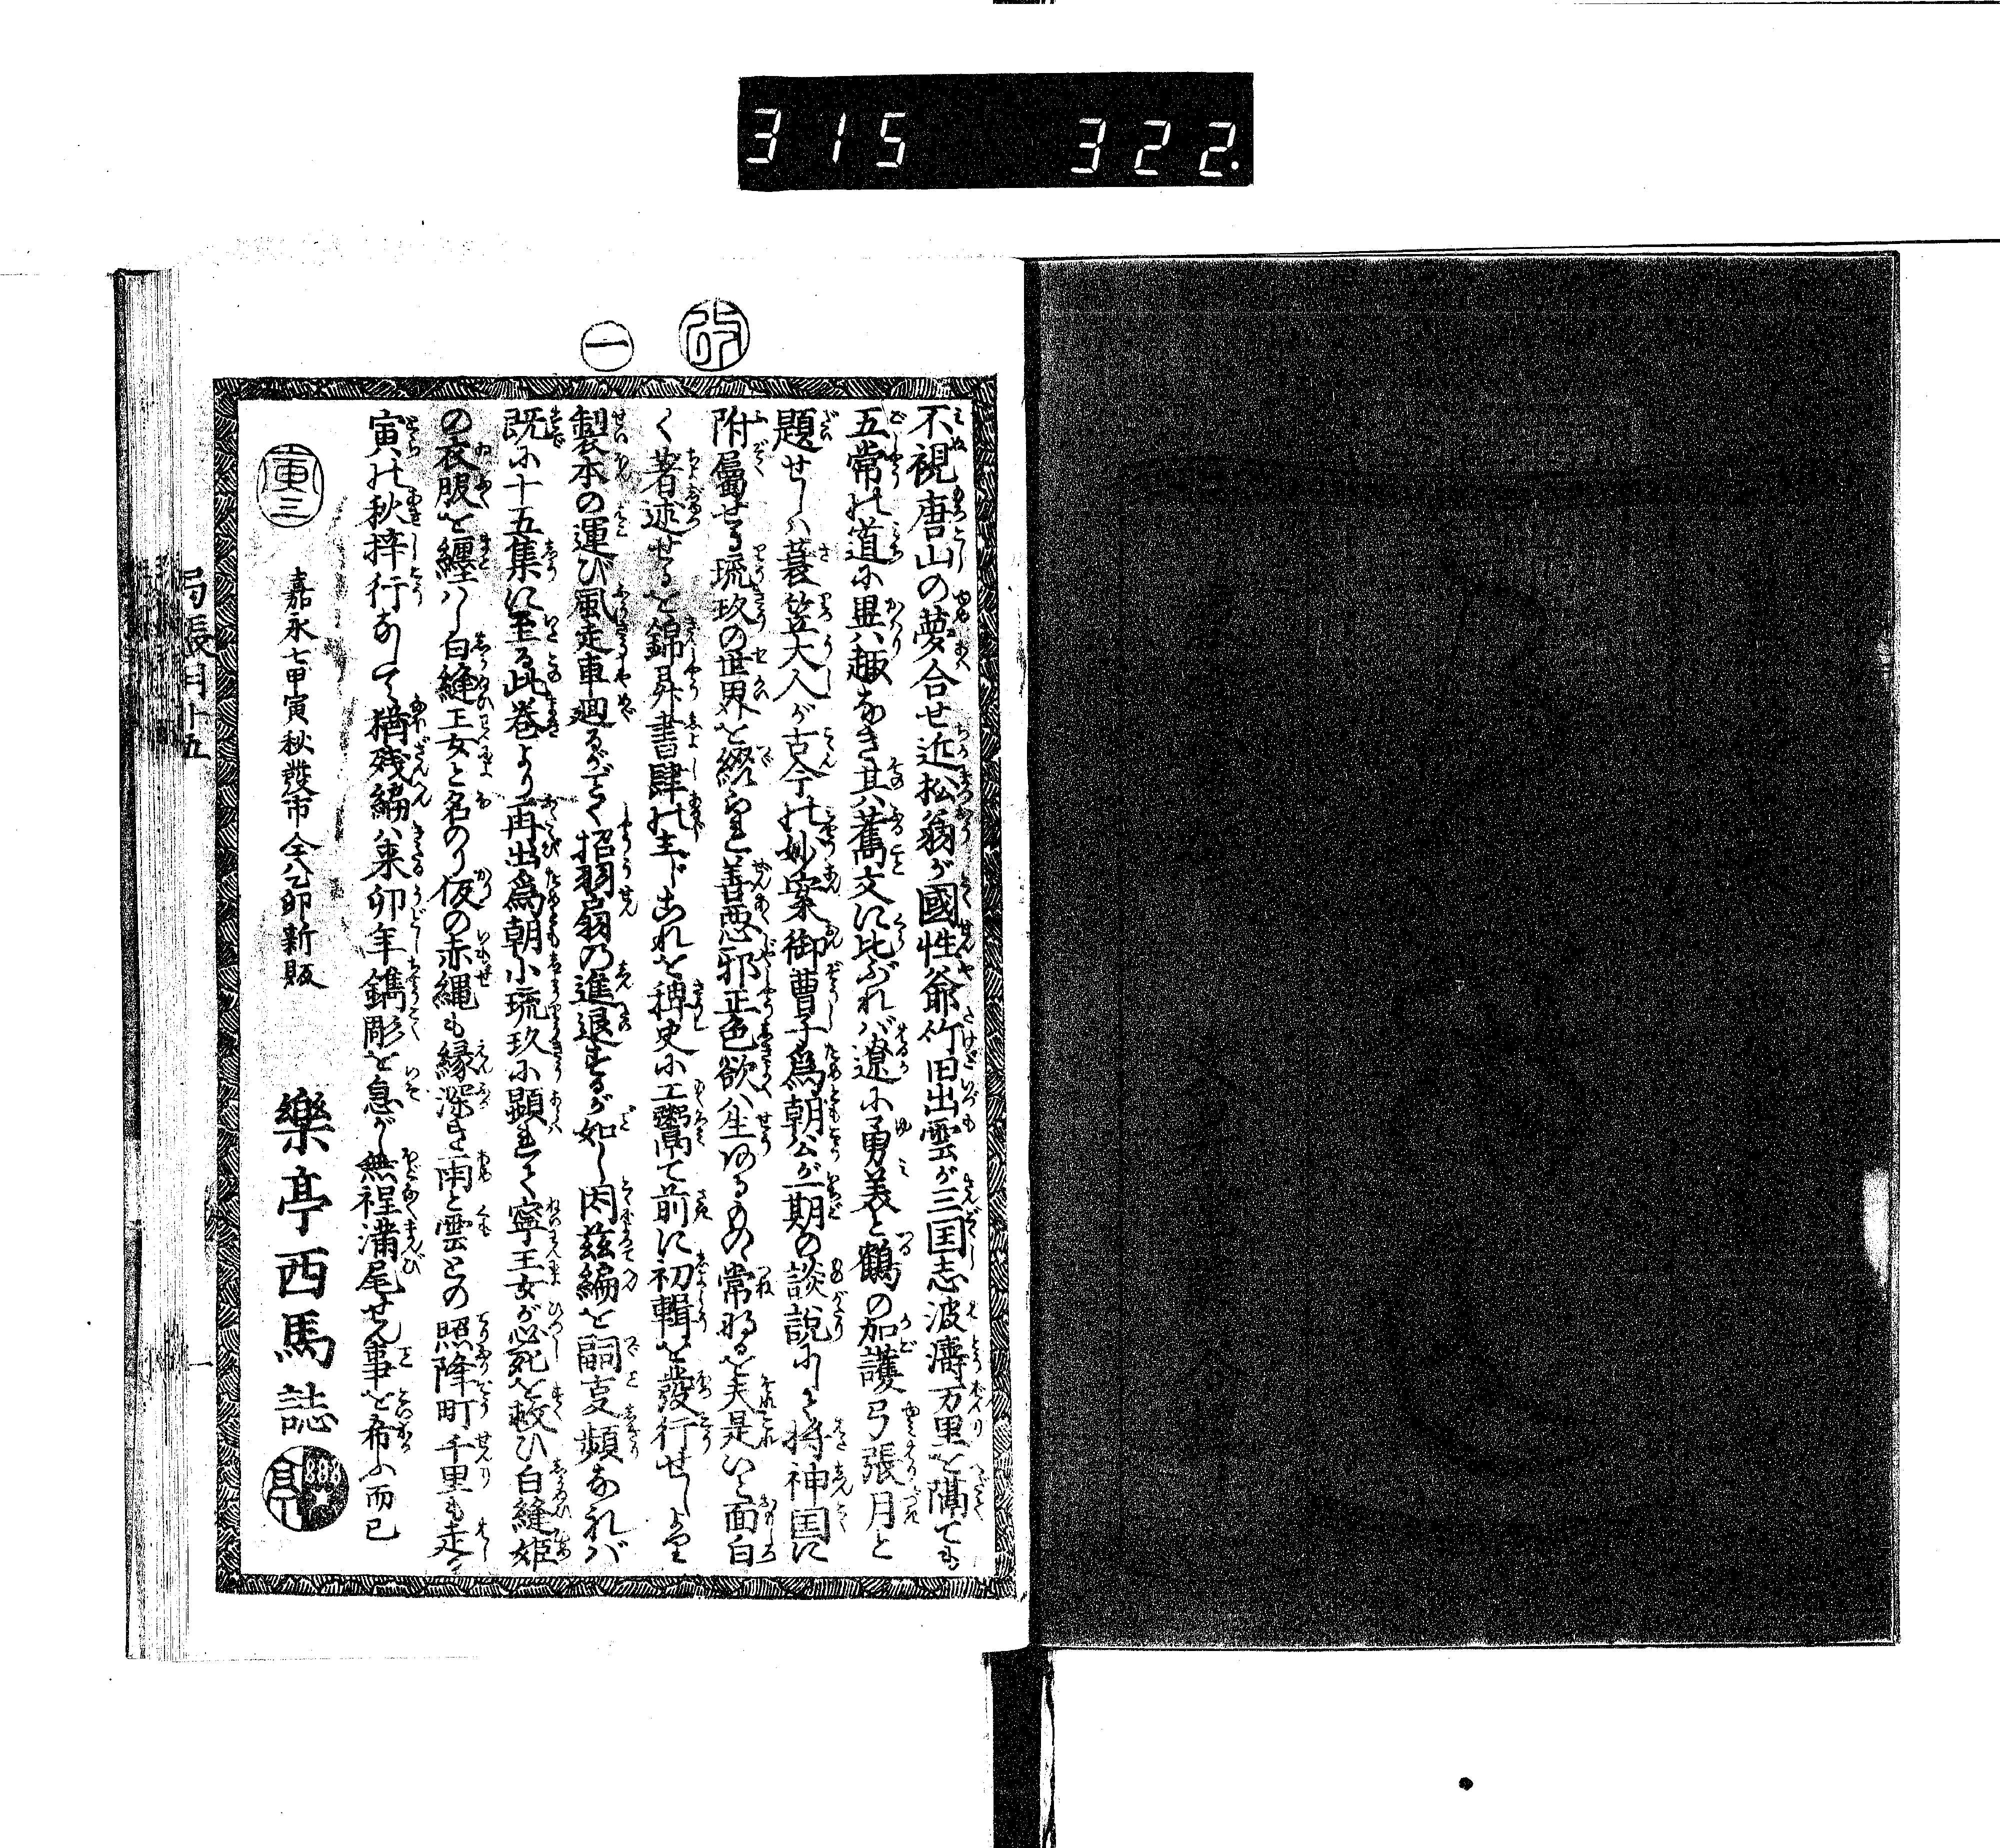 315 322.
改
一
不視唐山の夢合せ近松翁が國性爺竹田出雲が三国志波濤万里を隔ても
五常の道に異趣なき其舊文に比ぶれバ遼に勇美と鶴の加護弓張月と
題せしハ蓑笠大人が古今の妙案御曹子爲朝公が一期の談説にして将神国に
附属せる琉玖の世界を綴り善悪邪正色欲ハ生あるものゝ常なるを夫是いと面白
く著述せるを錦昇書肆の主じこれを稗史に工鬻て前に初輯を發行せしより
製本の運び風走車廻るがごとく招羽扇の進退するが如し因茲編を嗣支頻なれバ
既に十五集に至る此巻より再出爲朝小琉玖に顕れて寧王女が必死を救ひ白縫姫
の衣服を纏ハし白縫王女と名のり仮の赤縄も縁深き雨と雲との照降町千里も走る
寅の秋梓行なして猶残編ハ来卯年鐫彫を急がし無程満尾せん事を希ふ而已
嘉永七甲寅秋發市全乙卯新販
樂亭西馬誌
樂亭
弓張月十五
一